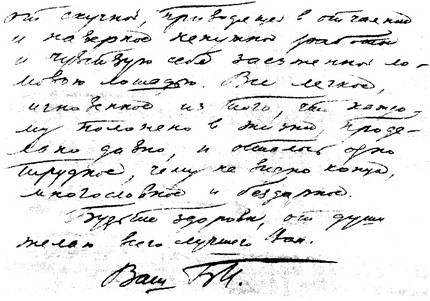 от скучной, приводящей в отчаяние
и наверное ненужной работы
и чувствую себя заезженной ло-
мовою лошадью. Все легкое,
мгновенное из того, что каждо-
му положено в жизни, проде-
лано давно, и осталось одно
трудное, чему не видно конца,
многословное и бездарное.
Будьте здоровы, от души
желаю всего лучшего Вам.
Ваш БП.